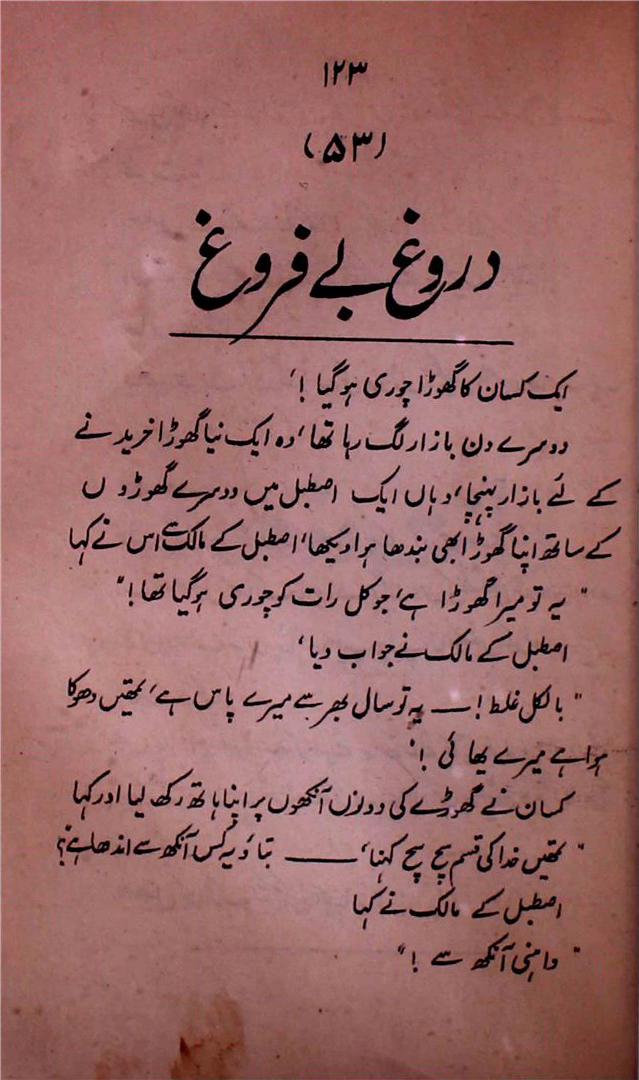 ۱۲۳
(۵۳)
دروغ بے فروغ
ایک کسان کا گھوڑا چوری ہوگیا !،
دوسرے دن بازار لگ رہا تھا، وہ ایک نیا گھوڑا خریدنے
کے لئے بازار پہنچا، وہاں ایک اصطبل میں دوسرے گھوڑوں
کے ساتھ اپنا گھوڑا بھی بندھا ہوا دیکھا، اصطبل کے مالک سے اس نے کہا
" یہ تو میرا گھوڑا ہے، جو کل رات کو چوری ہوگیا تھا !"
اصطبل کے مالک نے جواب دیا،
" بالکل غلط ! ــــ یہ تو سال بھر سے میرے پاس ہے، تمھیں دھوکا
ہوا ہے میرے بھائی !"
کسان نے گھوڑے کی دونوں آنکھوں پر اپنا ہاتھ رکھ لیا اور کہا
" تمھیں خدا کی قسم سچ سچ کہنا، ــــــ بتاؤ یہ کس آنکھ سے اندھا ہے؟"
اصطبل کے مالک نے کہا
" داہنی آنکھ سے !"